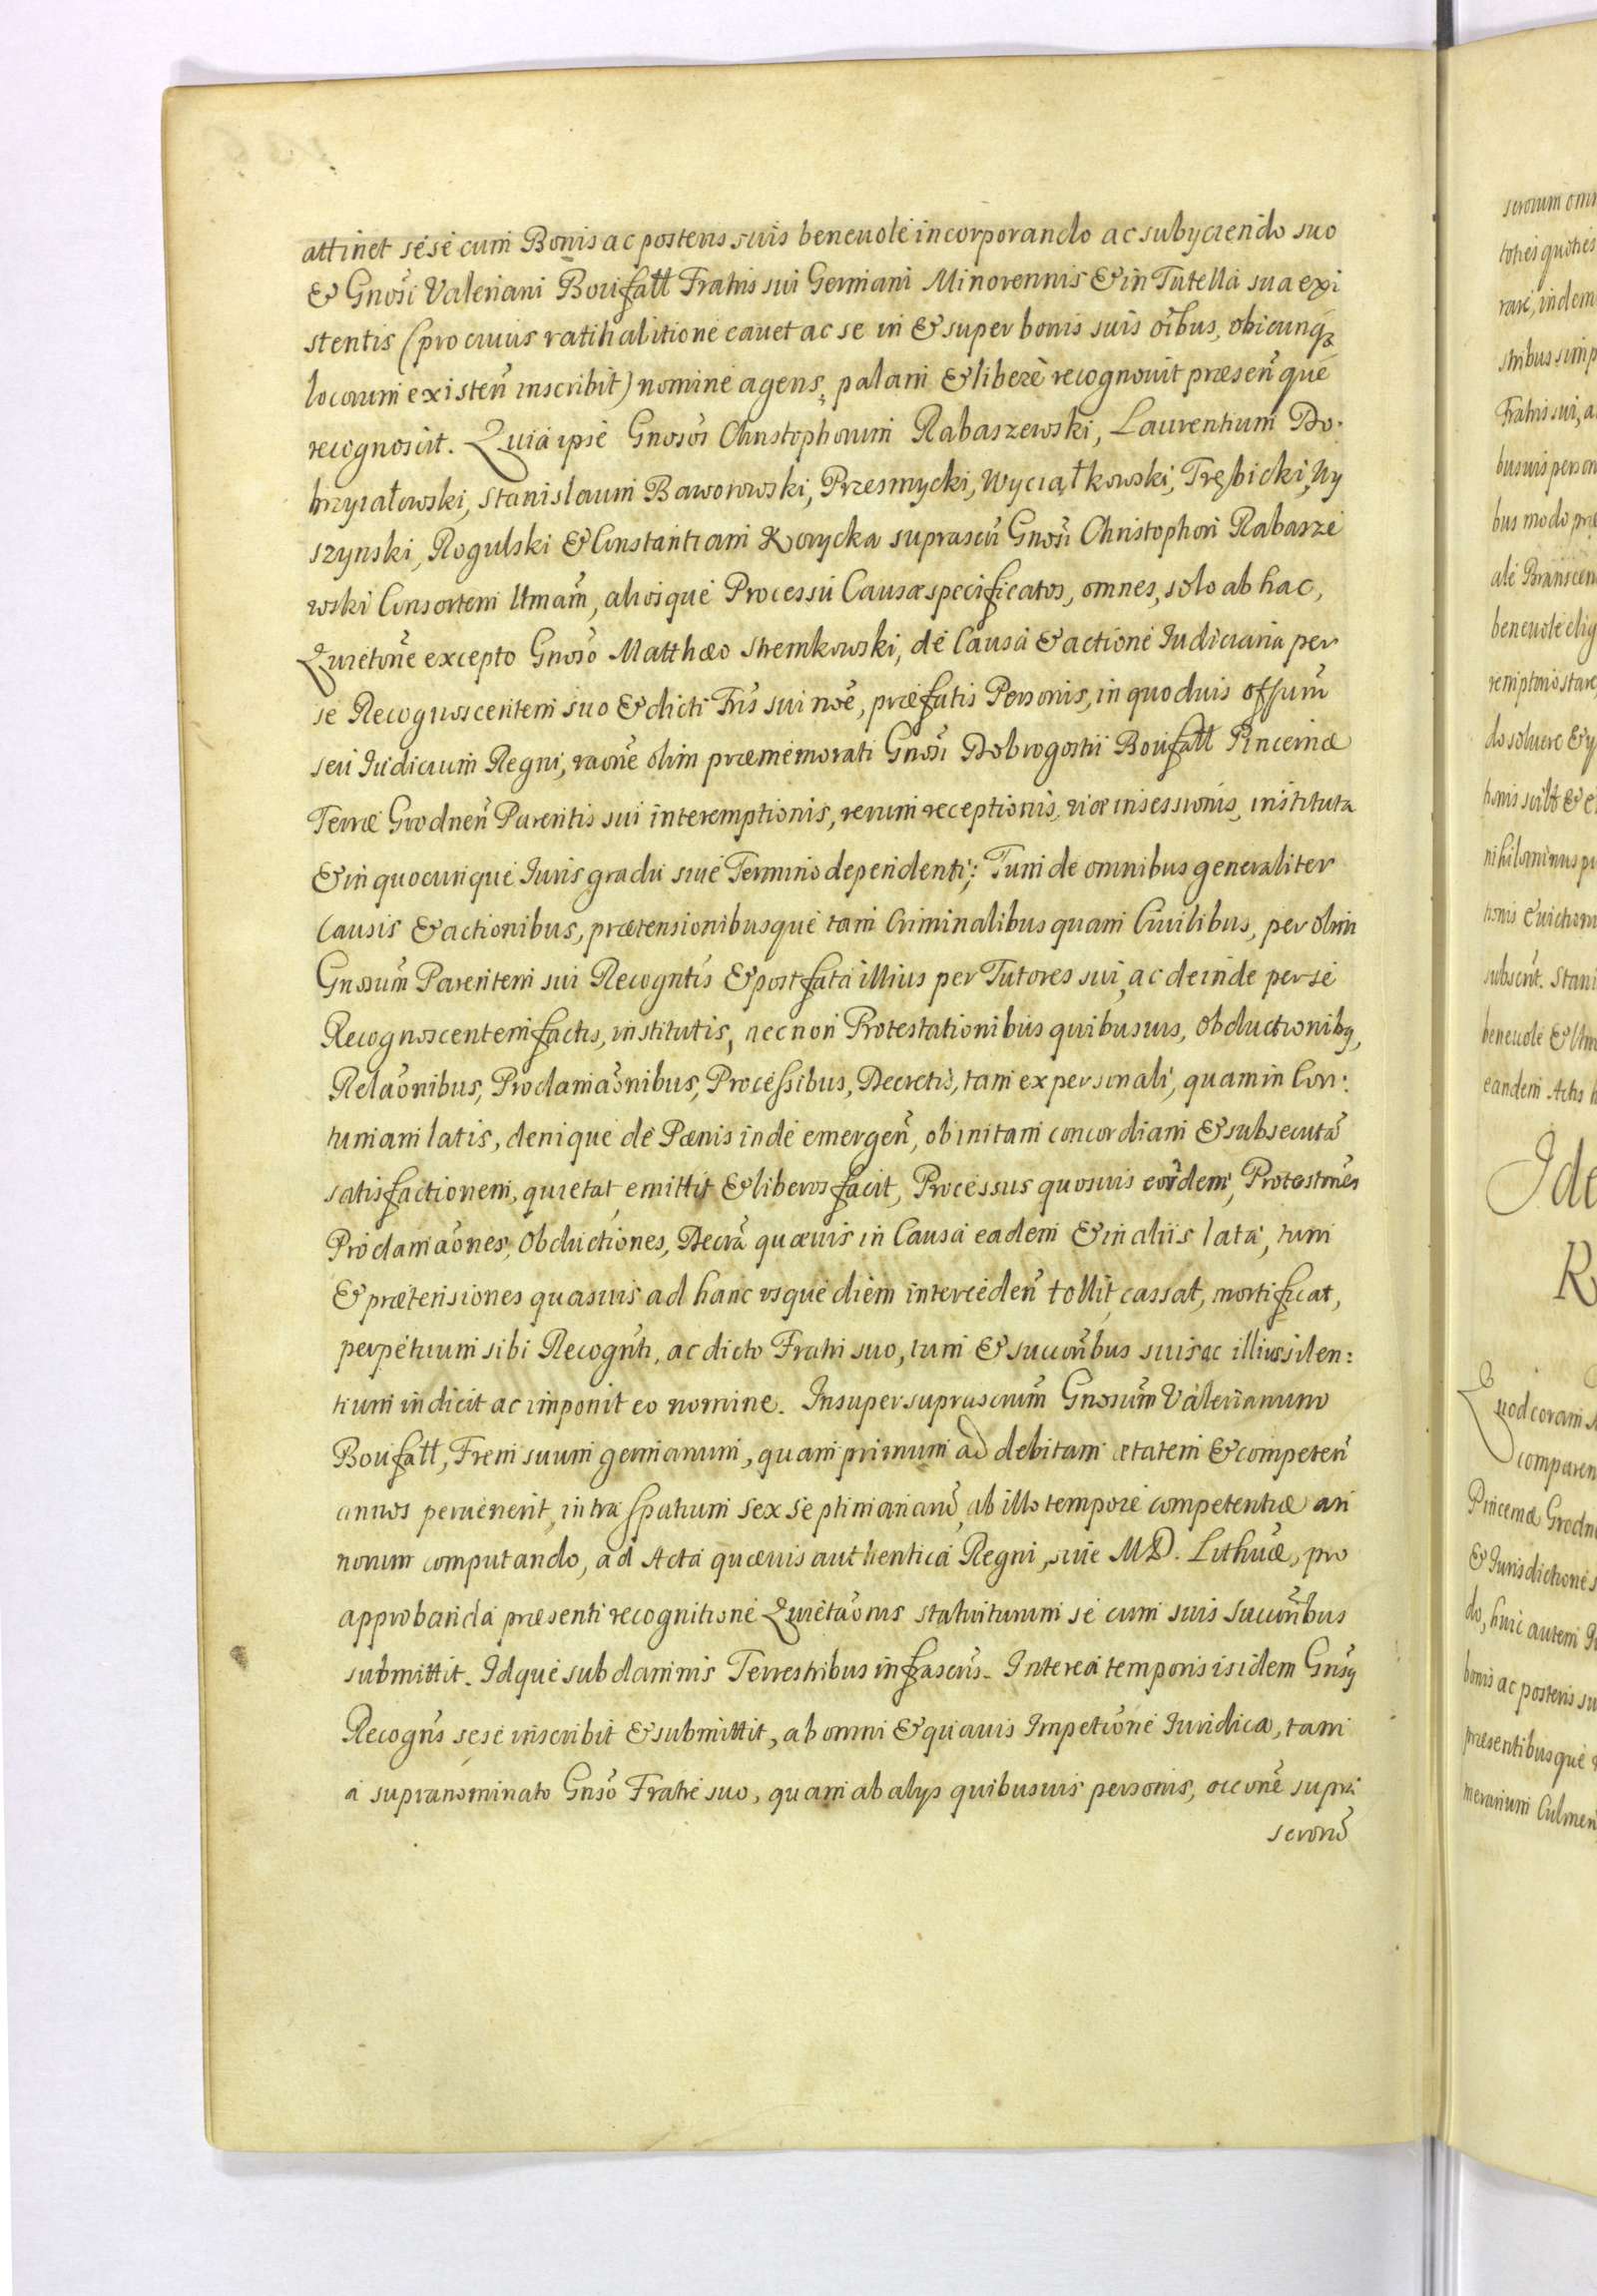 attinet sese cum Bonis ac posteris suis beneuole incorporando ac subyciendo suo
& Gnosi Valeriani Boufałł Fratris sui Germani Minorennis & in Tutella sua exi
stentis (pro cuius ratihabitione cauet ac se in & super bonis suis oibus, vbicunq3
locorum existen̄ inscribit) nomine agens, palam & libere recognouit præsen̄que
recognoscit. Quia ipse Gnosos Christophorum Rabaszewski, Laurentium Do-
brzyiałowski, Stanislaum Baworowski, Przesmycki, Wyciąłkowski, Trębicki, Wy
szynski, Rogulski & Constantiam Korycka suprascri Gnosi Christophori Rabasze
wski Consortem Ltmam̄, aliosque Processu Causæ specificatos, omnes, solo ab hac,
Quietone excepto Gnoso Matthæo Stremkowski, de Causa & actione Iudiciaria per
se Recognoscentem suo & dicti Fris sui noe, præfatis Personis, in quoduis Offum̄
seu Iudicium Regni, raone olim præmemorati Gnosi Dobrogostii Boufałł Pincernæ
Terræ Grodnen̄ Parentis sui interemptionis, rerum receptionis, viæ insessionis, instituta
& in quocunque Iuris gradu siue Termino dependenti; Tum de omnibus generaliter
Causis & actionibus, prætensionibusque tam Criminalibus quam Ciuilibus, per olim
Gnosum̄ Parentem sui Recogntis & post fata illius per Tutores sui, ac deinde per se
Recognoscentem factis, institutis, nec non Protestationibus quibusuis, Obductioniby,
Relaonibus, Proclamaonibus, Processibus, Decretis, tam ex personali, quam in Con:
tumiam latis, denique de Pænis inde emergen̄, ob initam concordiam & subsecutā
satisfactionem, quietat, emittit & liberos facit, Processus quosuis eordem, Protestones
Proclamaones, Obductiones, Decrā quæuis in Causa eadem & in aliis lata, tum
& prætensiones quasuis ad hanc vsque diem interceden̄ tollit, cassat, mortificat,
perpetuum sibi Recogn̄ti, ac dicto Fratri suo, tum & succrībus suis ac illius silen:
tium indicit ac imponit eo nomine. Insuper suprascrum̄ Gnosum̄ Valerianum
Boufałł, Frem suum germanum, quam primum ad debitam ætatem & competen̄
annos peruenerit, intra spatium sex septimanarū, ab illo tempore competentiæ an
norum computando, ad Acta quæuis authentica Regni, siue M D. Lithuæ, pro
approbanda præsenti recognitione Quietaonis statuiturum se cum suis sucurībus
submittit. Idque sub damnis Terrestribus infrascris. Interea temporis is idem Gnsy
Recogns sese inscribit & submittit, ab omni & quauis Impetione Iuridica, tam
a supranominato Gnso Fratre suo, quam ab alys quibusuis personis, occone supra
scrorū